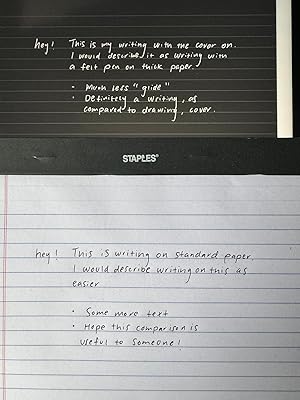 hey! This is my writing with the cover on.
I would describe it as writing with
a felt pen on thick paper.
- Much less "glide"
- Definitely a writing, as
compared to drawing, cover.
STAPLES
hey! This is writing on standard paper.
I would describe writing on this as
easier
• Some more text
• Hope this comparison is
useful to someone!